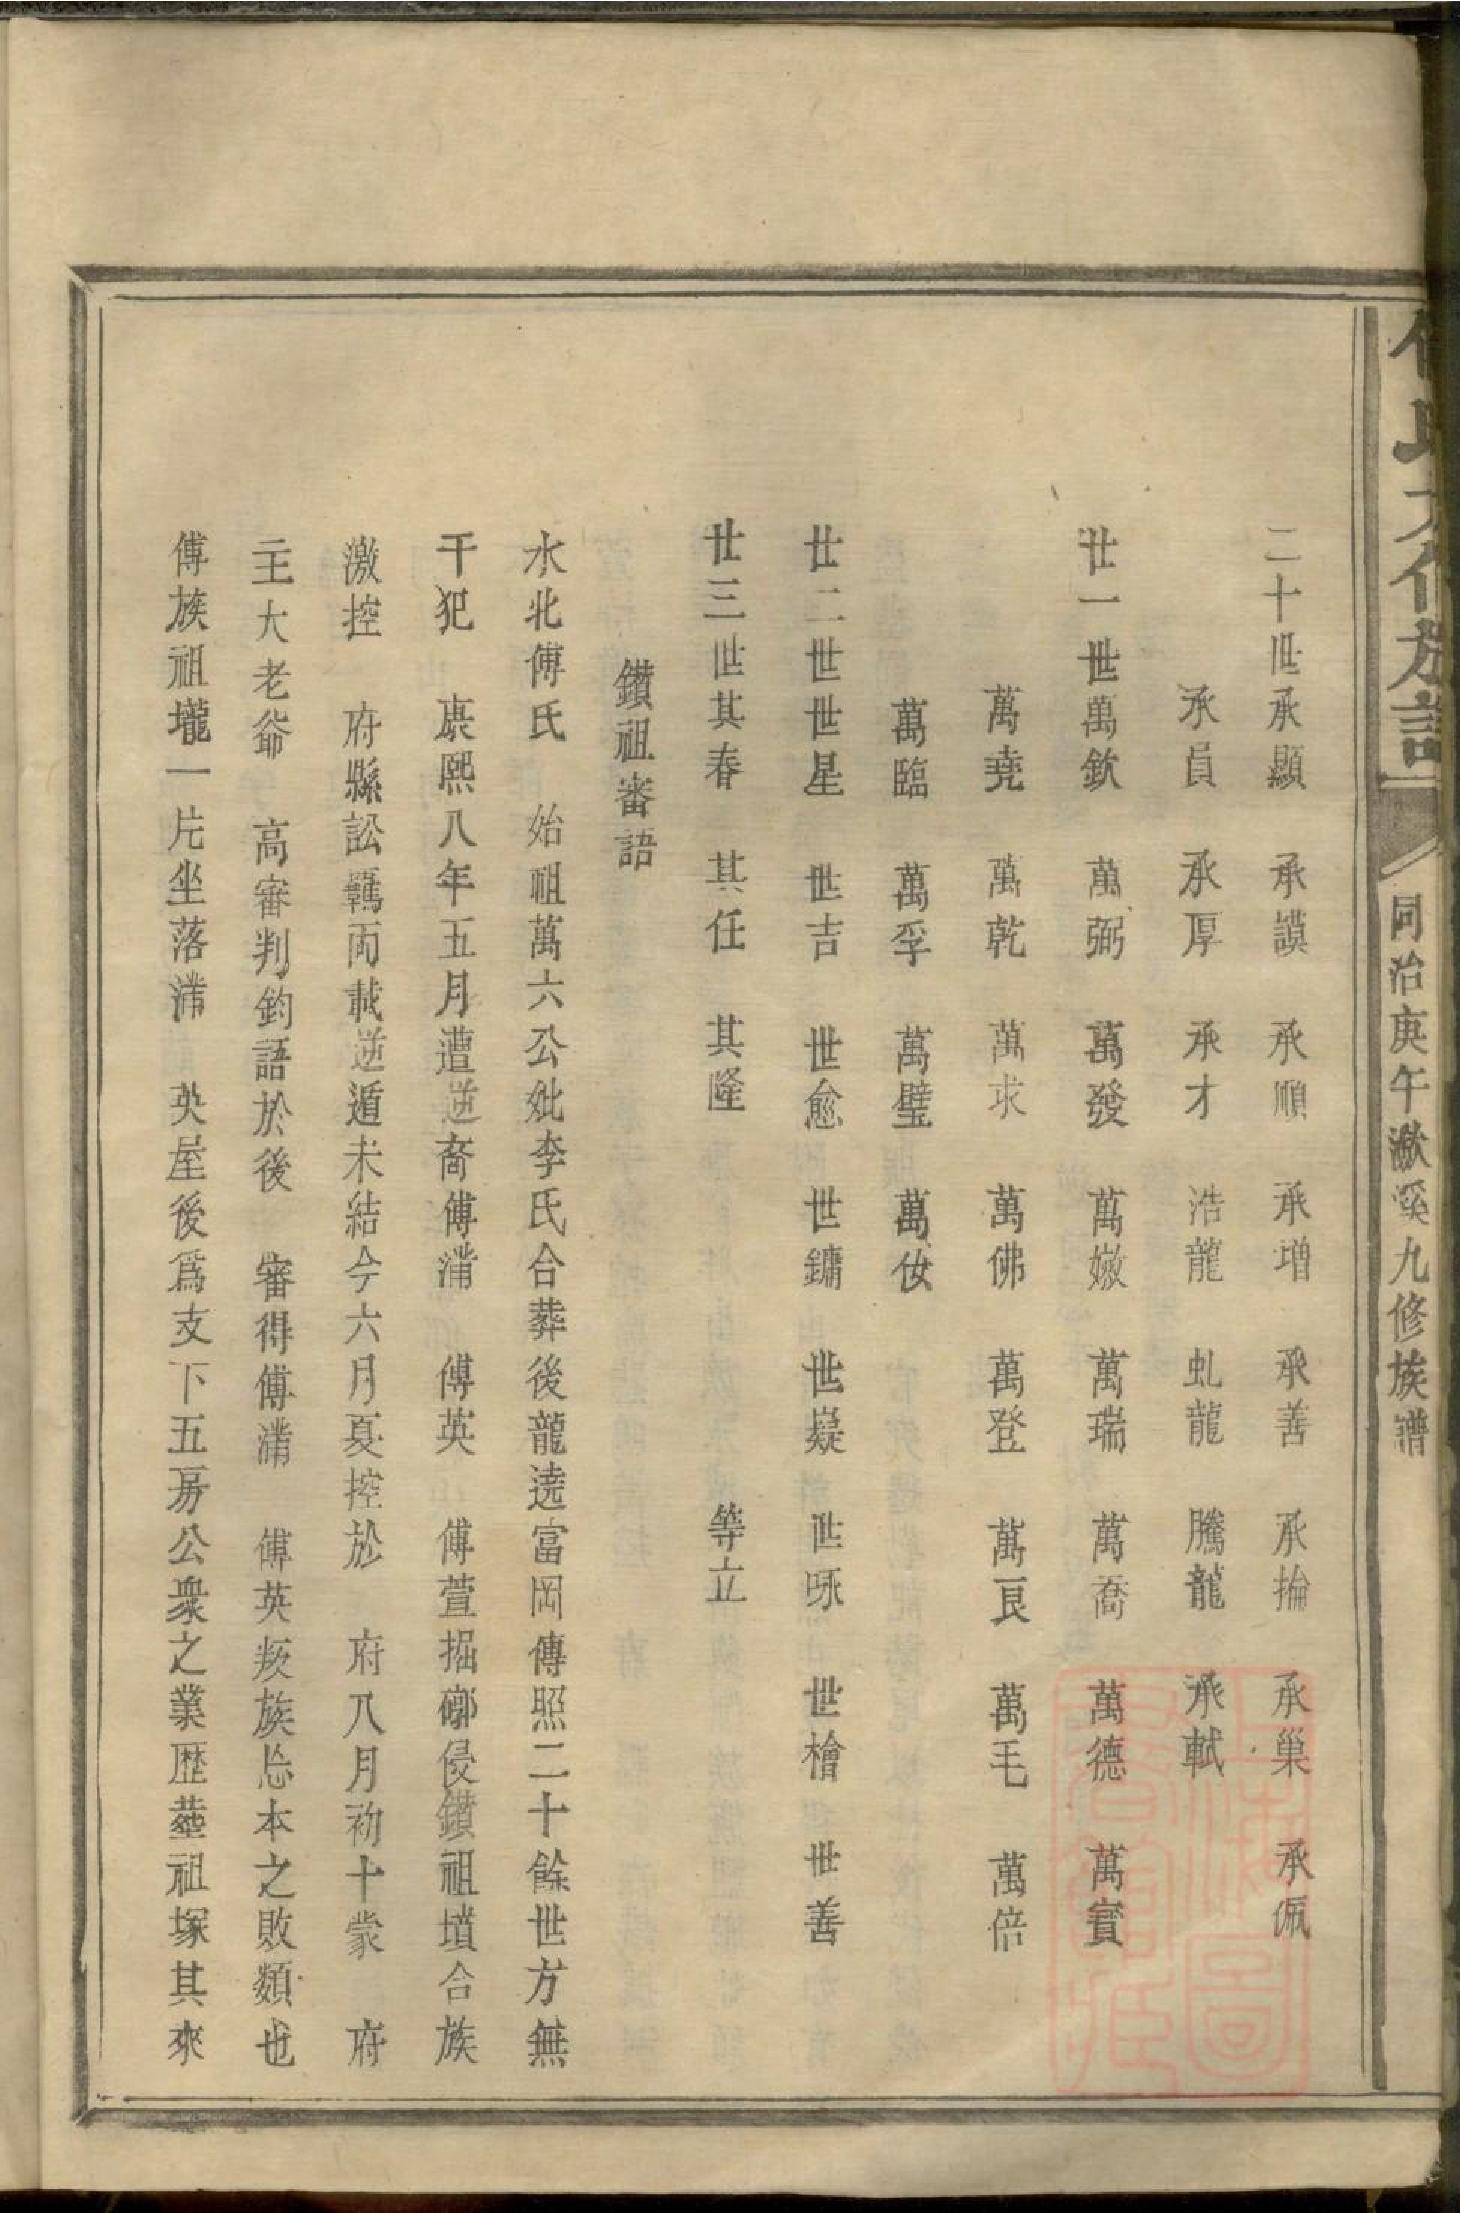 傅氏大作族譜
同治庚午漵溪九修族譜
二十世承顯　承謨　承順　承增　承善　承掄　承巢　承佩
承員　承厚　承才　浩龍　虬龍　騰龍　承軾
廿一世萬欽　萬弼　萬發　萬嫩　萬瑞　萬喬　萬德　萬寳
萬堯　萬乾　萬求　萬佛　萬登　萬艮　萬毛　萬倍
萬臨　萬孚　萬璧　萬伩
廿二世世星　世吉　世愈　世鏞　世嶷　世咏　世檜　世善
廿三世其春　其任　其隆　等立
鑚祖審語
水北傅氏　始祖萬六公妣李氏合葬後龍遶富岡傅照二十餘世方無
干犯　康熙八年五月遭逆裔傅溝　傅英　傅萱掘鄰侵鑚祖墳合族
激控　府縣訟羈兩載逆遁未結今六月夏控於　府八月初十蒙　府
主大老爺　高審判鈞語於後　審得傅溝　傅英叛族忘本之敗類也
傅族祖壠一片坐落溝　英屋後爲支下五房公衆之業歷葬祖塚其來